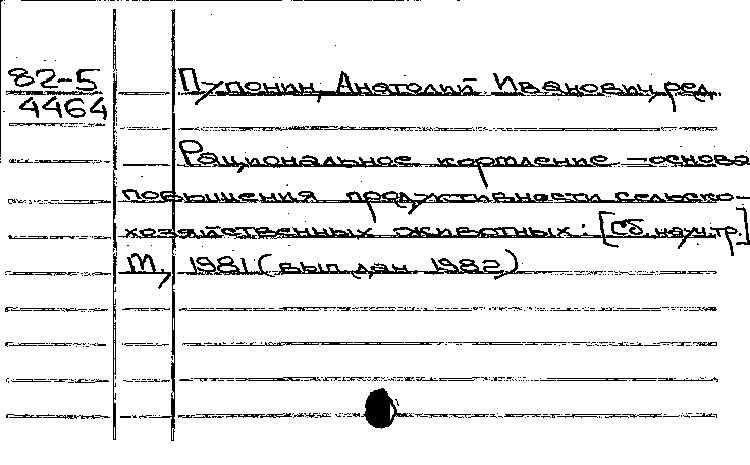 82-5
4464
Пупонин, Анатолий Иванович, ред.
Рациональное кормление - основа
повышения продуктивности сельско-
хозяйственных животных: [Сб. науч. тр.]
М., 1981 (вып. дан. 1982)